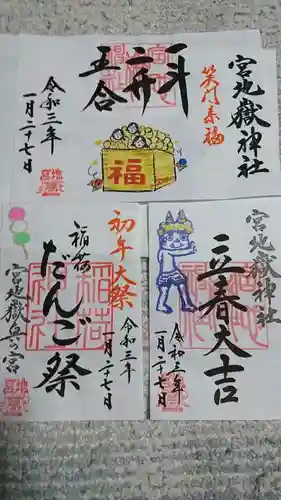 宮地嶽神社
笑門来福
一斗
二升
五合
令和三年
一月二十七日
福
初午大祭
稲荷
だんご祭
令和三年
一月二十七日
宮地嶽
宮地嶽神社
立春大吉
令和三年
一月二十七日